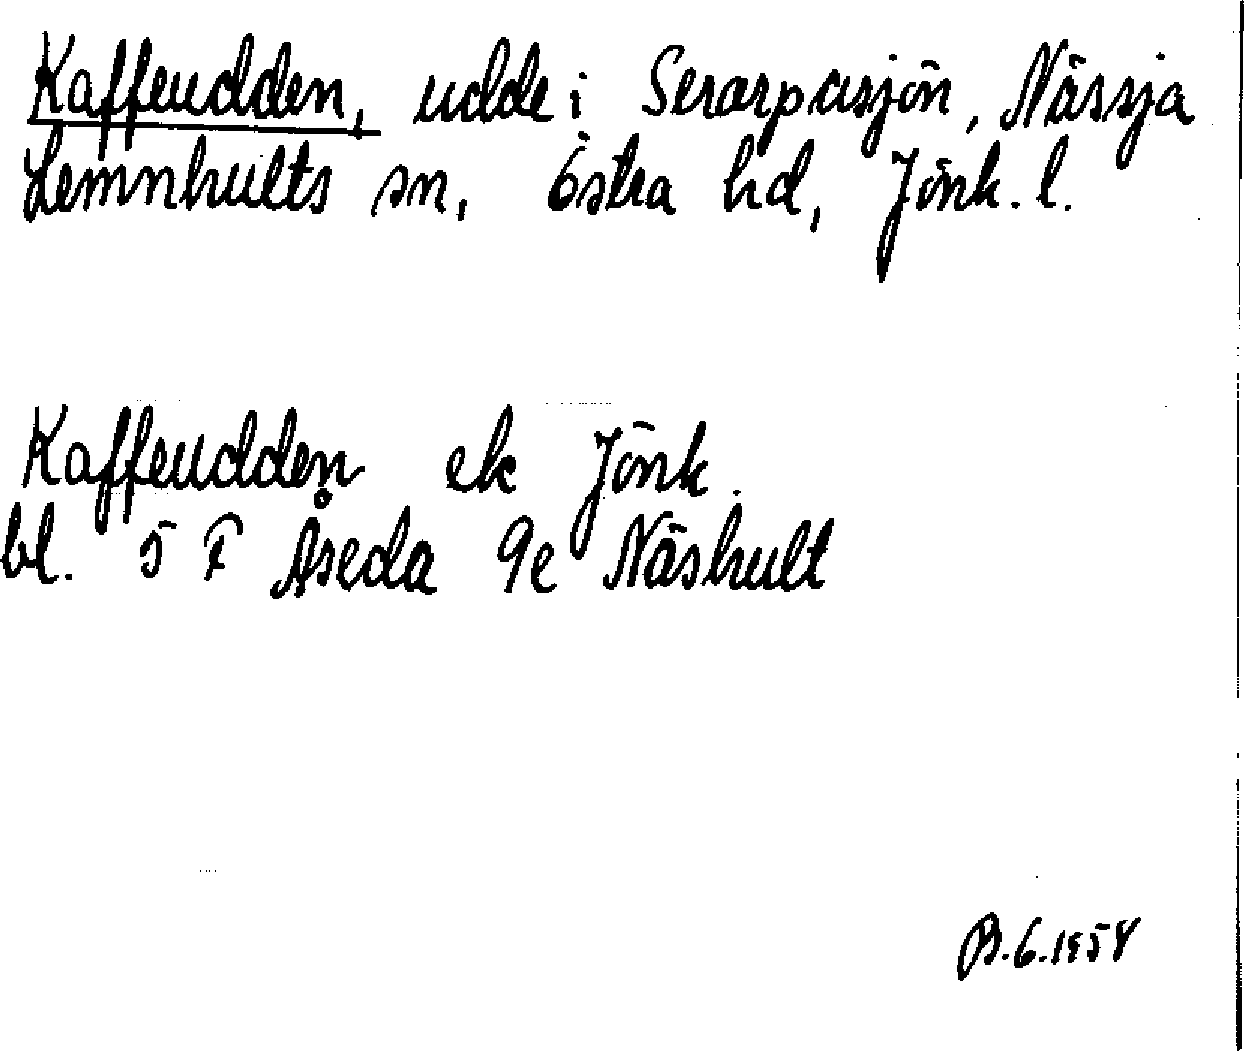 Kaffeudden, udde i Serarpasjön, Nässja
Lemnhults sn, Östra hd, Jönk. l.
Kaffeudden ek Jönk.
bl. 5 F Åseda 9e Näshult
B.6.1954